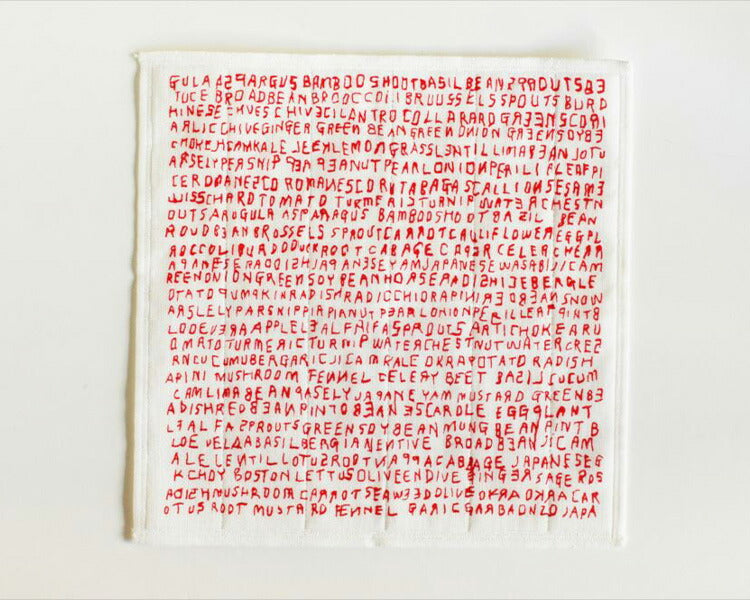 GULA ASPARGUS BAMBOO SHOOT BASIL BEAN SPROUTS BE
TUCE BROADBEAN BROOCCOILI BRUUSSELS SPOUTS BURD
HINESE CHVES CHIVE CILANTRO COLLARARD GREENS CORI
ARLIC CHIVE GINGER GREEN BEAN GREEN ONION GREEN SOYBE
KALE LEEK LEMONGRASS LENTIL LIMA BEAN LOTU
ARSELY PERSNIP PEA PEANUT PEARL ONION PERIL
ROMANESCO RUTABAGA SCALLION SESAME
WISS CHARD TOMATO TURMERIS TURNIP WATERCHESTN
OUTS ARUGULA ASPARAGUS BAMBOOSHOOT BAZIL BEAN
ROUD BEAN BROSSELS SPROUT CARROT CAULIFLOWER EGGPL
ROCCOLI BURDODUCK ROOT CABAGE CAPER CELER CHERR
APANESE RADDISH JAPANESE YAM JAPANESE WASABI JICAM
REENONION GREEN SOY BEAN HORSERADISH
OTATO PUMPKIN RADISH RADICCHIO RAPINI RED BEAN SNOW
ARSLELY PARSHIP PEARL ONION PERILLEAP PINTB
LOOEVERA APPLE LEALFAIFA SPROUTS ARTICHOKE ARU
OMATO TURMERIC TURNIP WATERCHESTNUT WATERCRES
RN CUCUMUBER GARIC JICAM KALE OKRA POTATO RADISH
APINI MUSHROOM FENNEL CELERY BEET BASIL CUCUM
CAM LIMA BEAN PASELY JAPANE YAM MUSTARD GREEN BE
ADISH RED BEAN PINTO BEAN ESCAROLE EGGPLANT
LEALFA SPROUTS GREEN SOY BEAN MUNG BEAN PAINT B
LOE VELLA BASIL BERGIAN ENTIVE BROAD BEAN JICAM
ALE LENTIL LOTUS ROOT NAPPA CABBAGE JAPANESE G
KCHOY BOSTON LETTUS OLIVE ENDIVE GINGER SAGE ROS
ADISH MUSHROOM CARROT SEAWEED OLIVE OKRA OKRA CAR
OTUS ROOT MUSTARD FENNEL GARIC GARBAONZO JAPA